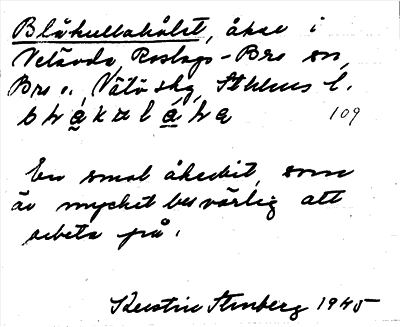 Blåkullahålet, åker i
Vetävda, Roslags-Bro sn,
Bro o. Vätö skg, Sthlms l.
109
En smal åkerbit, som
är mycket besvärlig att
arbeta på.
Kerstin Stenberg 1945